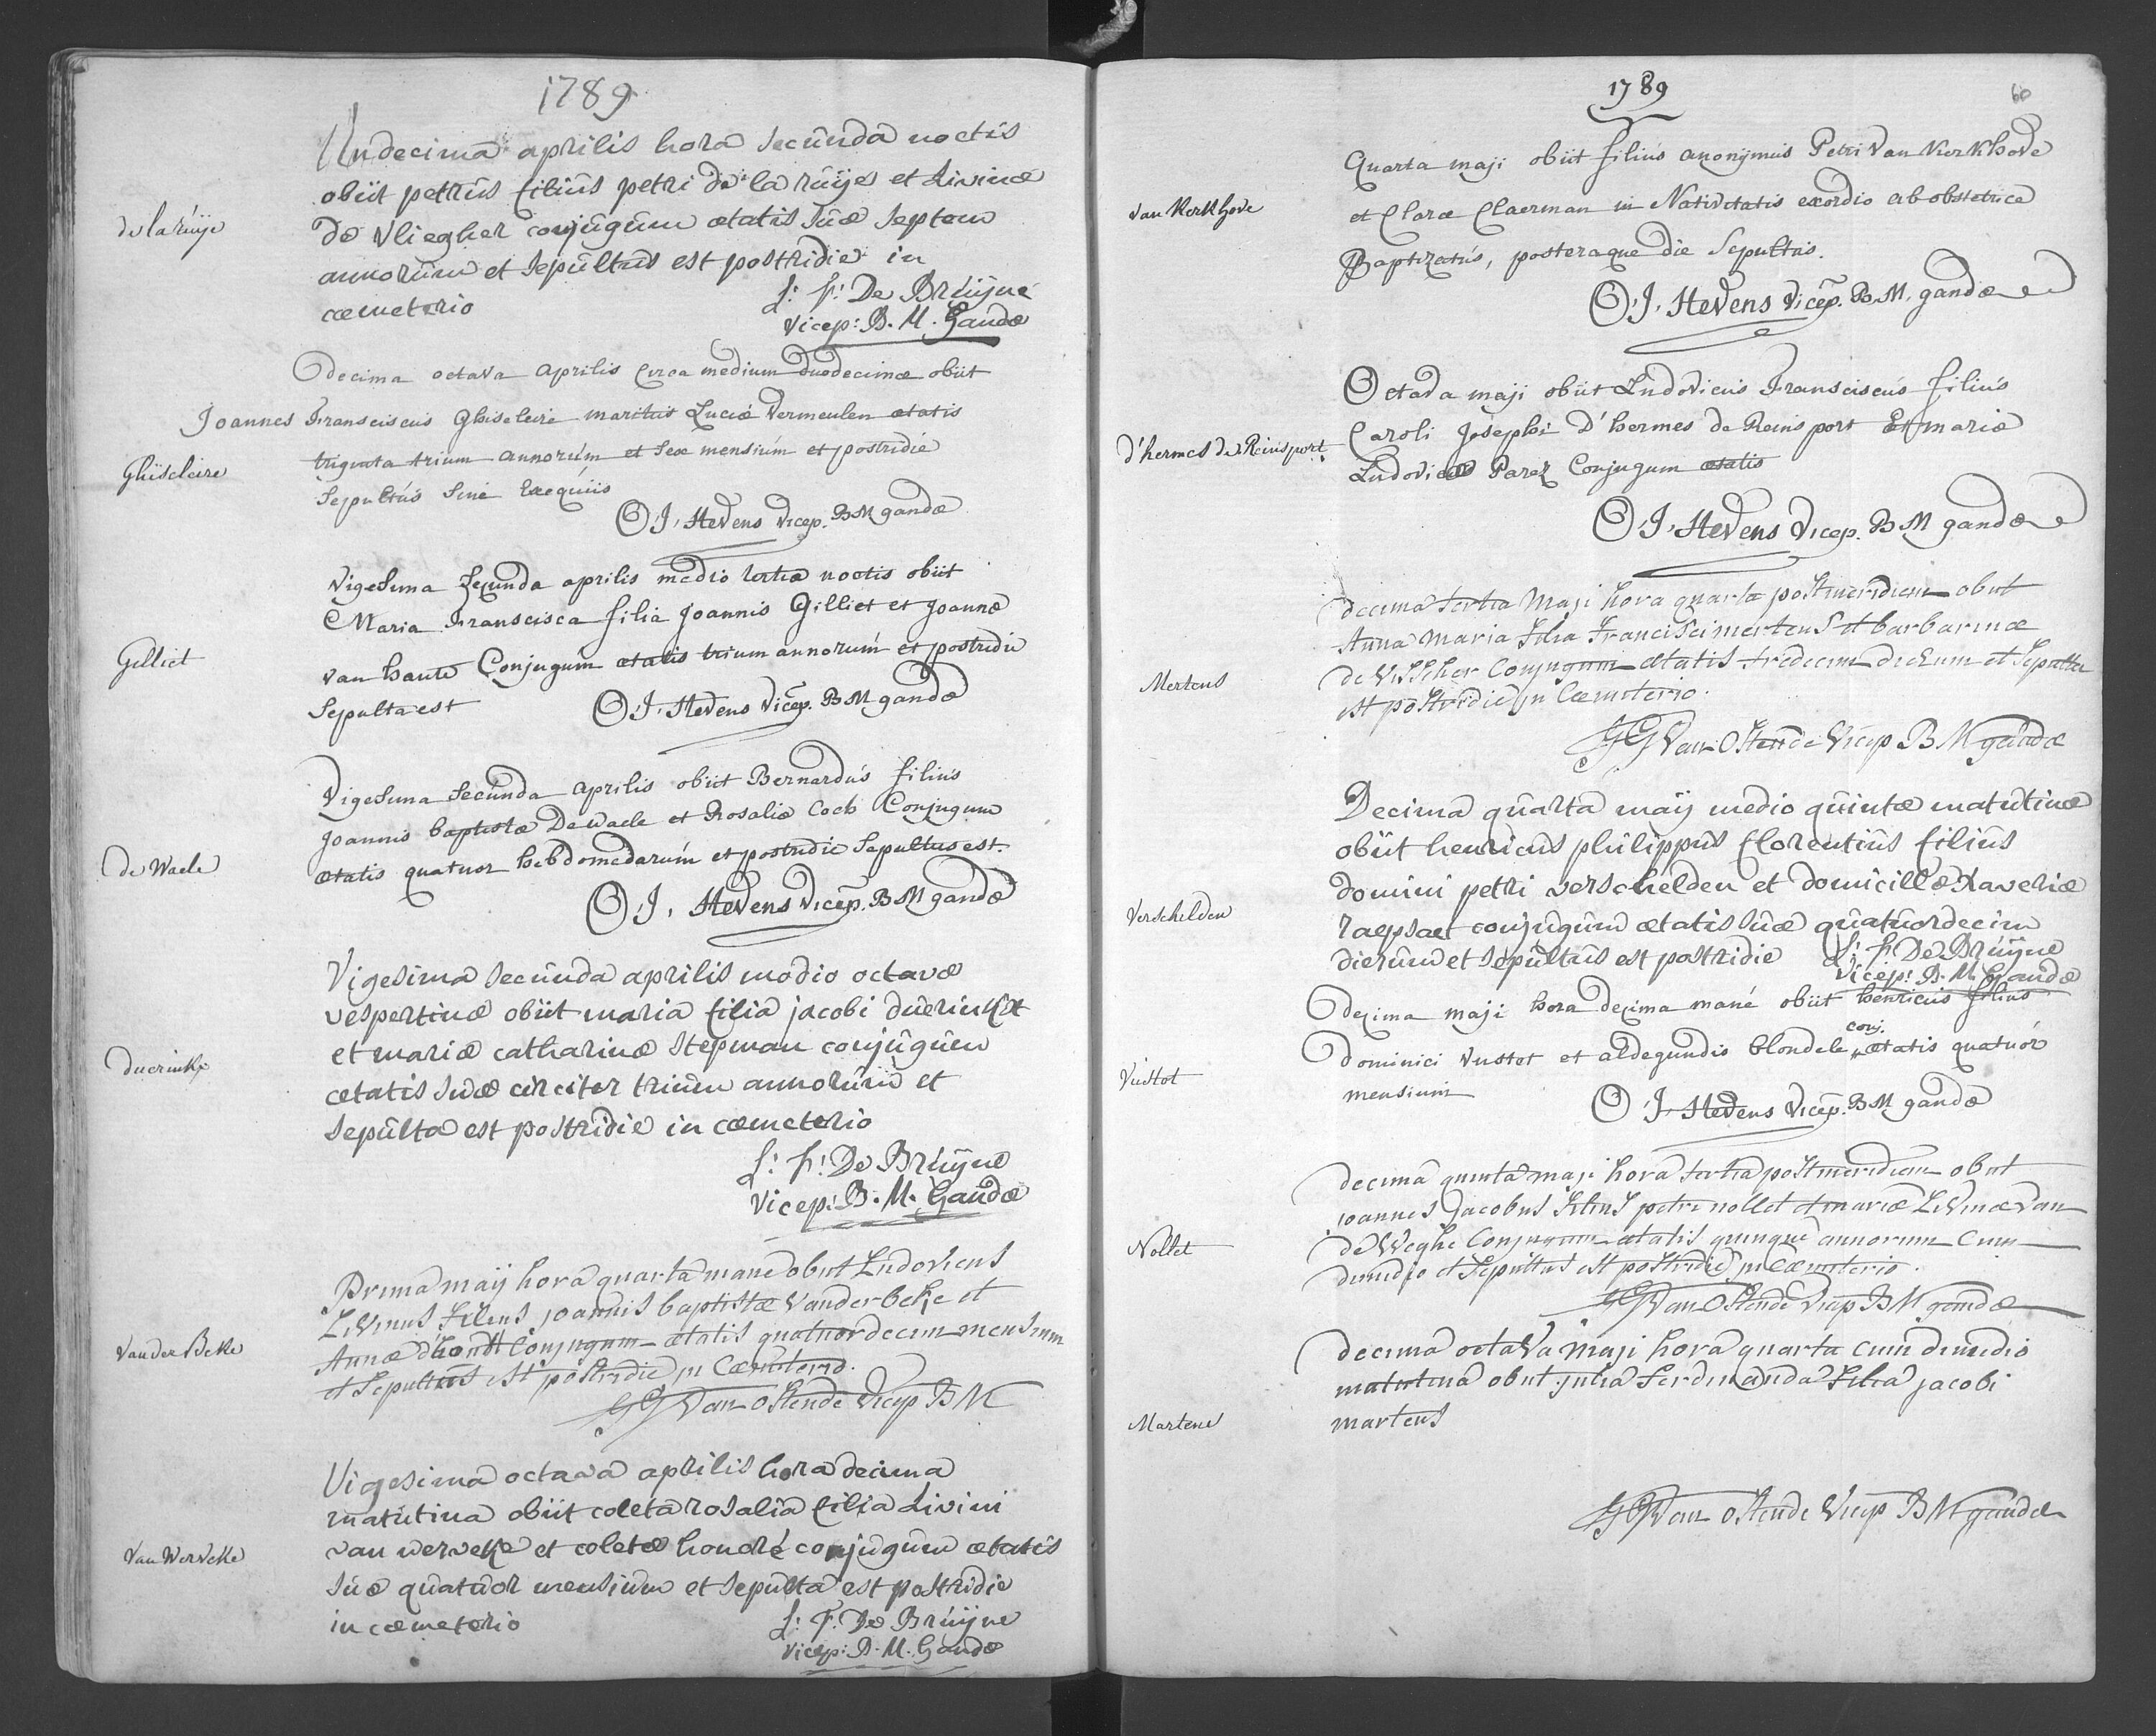 1789
Undecima aprilis hora secunda noctis
obiit petrus filius petri de la ruije et Livinæ
de la ruije
de vliegher conjugum ætatis suæ septem
annorum et sepultus est postridie in
cœmeterio
f: f: De Bruijne
vicep: B. M. Gandæ
decima octava aprilis circa medium duodecimæ obiit
Joannes Franciscus Ghiseleire maritus Luciæ Vermeulen ætatis
triginta trium annorum et sex mensium et postridie
Ghiseleire
sepultus sine exequiis
O. J. Stevens vicep. B M gandæ
Vigesima secunda aprilis medio tertiæ noctis obiit
Maria Franscisca filia Joannis Gilliet et Joannæ
Gilliet
van haute Conjugum ætatis trium annorum et postridie
Sepulta est
O. J. Stevens Vicep. B M gandæ
Vigesima secunda aprilis obiit Bernardus filius
Joannis baptistæ De waele et Rosaliæ Cock Conjugum
de Waele
ætatis quatuor hebdomedarum et postridie sepultus est.
O. J. Stevens Vicep. B M gandæ
Vigesima secunda aprilis medio octavæ
vespertinæ obiit maria filia jacobi duerinckx
et mariæ catharinæ stepman conjugum
duerinckx
ætatis suæ circiter trium annorum et
sepulta est postridie in cœmeterio
f: f: De Bruijne
Vicep: B. M. Gandæ
Prima maij hora quarta mane obiit Ludovicus
Livinus filius joannis baptistæ Vanderbeke et
Van der Beke
Annæ d'hondt Conjugum ætatis quatuordecim mensium
et sepultus est postridie in Cœmeterio.
J G Van Ostende Vicep B M
Vigesima octava aprilis hora decima
matutina obiit coleta rosalia filia Livini
Van Werveke
van werveke et coletæ honoré conjugum ætatis
suæ quatuor mensium et sepulta est postridie
in cœmeterio
f: f: De Bruijne
vicep: B. M. Gandæ
1789
60
Quarta maji obiit filius anonymus Petri Van Kerkhove
van Kerkhove
et Claræ Claerman in Nativitatis exordio ab obstetrice
Baptizatus, posteraque die Sepultus.
O. J. Stevens Vicep. B. M. gandæ
Octava maji obiit Ludovicus Fransciscus filius
Caroli Josephi D'hermes de Reinsport Et mariæ
d'hermes de Reinsport
Ludovicæ Parez Conjugum ætatis
O. J. Stevens Vicep. B M gandæ
decima tertia Maji hora quarta postmeridiem obiit
Anna Maria filia Francisci mertens et barbarinæ
Mertens
de Visscher Conjugum ætatis tredecim dierum et sepulta
est postridie in Cœmeterio.
J G Van Ostende Vicep B M gandæ
Decima quarta maij medio quintæ matutinæ
obiit henricus philippus florentius filius
domini petri verschelden et domicillæ Xaveriæ
Verschelden
raepsaet conjugum ætatis suæ quatuordecim
dierum et sepultus est postridie
f: f: De Bruijne
Vicep: B. M. Gandæ
Decima maji hora decima mané obiit henricus filius
Dominici Vustot et aldegundis blondele conj. ætatis quatuor
Vustot
mensium
O. J. Stevens Vicep. B M gandæ
decima quinta maji hora tertia postmeridiem obiit
joannes Jacobus filius petri nollet et mariæ Livinæ Van
Nollet
de Weghe Conjugum ætatis quinque annorum Cum
dimidio et sepultus est postridie in Cœmeterio.
J G Van Ostende Vicep B M gandæ
decima octava maji hora quarta cum dimidio
matutina obiit julia Ferdinanda filia jacobi
Martens
martens
J G Van Ostende Vicep B M gandæ